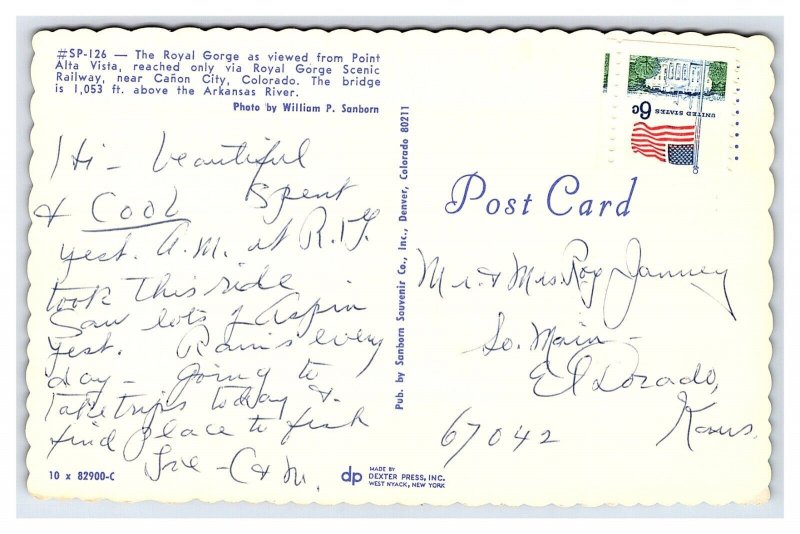 #SP-126 — The Royal Gorge as viewed from Point
Alta Vista, reached only via Royal Gorge Scenic
Railway, near Cañon City, Colorado. The bridge
is 1,053 ft. above the Arkansas River.
Photo by William P. Sanborn
Hi - beautiful
& Cool Spent
yest. A.M. at R.G.
took this ride
Saw lots of Aspin
yest. Rains every
day - going to
take trips today &
find place to fish
C & M.
10 x 82900-C
Pub. by Sanborn Souvenir Co., Inc., Denver, Colorado 80211
dp
MADE BY
DEXTER PRESS, INC.
WEST NYACK, NEW YORK
UNITED STATES 6c
Post Card
Mr. & Mrs Roy Janney
So. Main -
El Dorado,
Kans.
67042